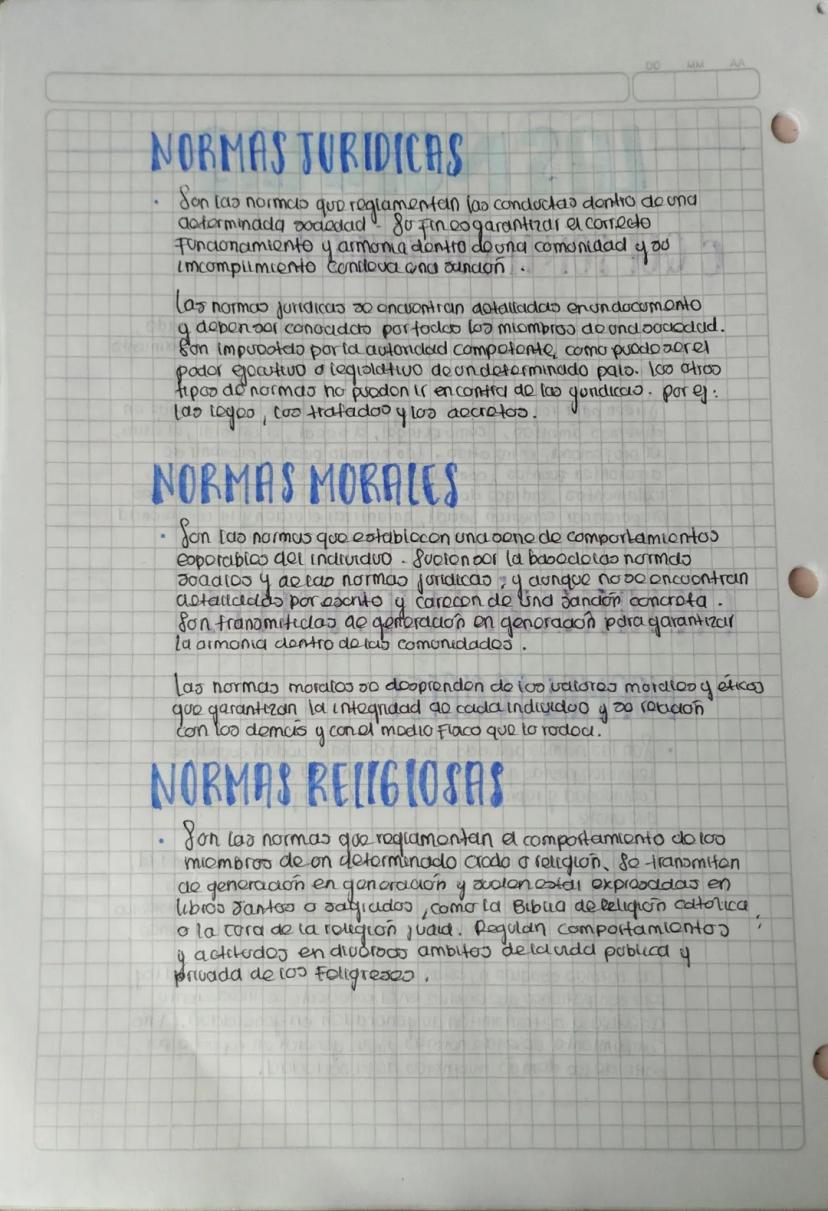 DD MM AA
NORMAS JURIDICAS
• Son las normas que reglamentan las conductas dentro de una
determinada sociedad. Su fin es garantizar el correcto
funcionamiento y armonia dentro de una comunidad y su
imcomplimiento conlleva una sanción.
Las normas juridicas se encuentran detalladas en un documento
y deben ser conocidas por todos los miembros de una sociedad.
Son impuestas por la autoridad competente, como puede ser el
poder ejecutivo o legislativo de un determinado pais. Los otros
tipos de normas no pueden ir en contra de las juridicas. por ej:
las leyes, los tratados y los decretos.
NORMAS MORALES
• Son las normas que establecen una serie de comportamientos
esperables del individuo. Suelen ser la base de las normas
sociales y de las normas juridicas, y aunque no se encuentran
detalladas por escrito y carecen de una sanción concreta.
Son transmitidas de generación en generación para garantizar
la armonia dentro de las comunidades.
Las normas morales se desprenden de los valores morales y éticos
que garantizan la integridad de cada individuo y su relación
con los demás y con el medio fisico que lo rodea.
NORMAS RELIGIOSAS
• Son las normas que reglamentan el comportamiento de los
miembros de un determinado credo o religión. Se transmiten
de generación en generación y suelen estar expresadas en
libros santos o sagrados, como la Biblia de religión catolica,
o la tora de la religión judia. Regulan comportamientos
y actitudes en diversos ambitos de la vida publica y
privada de los feligreses.